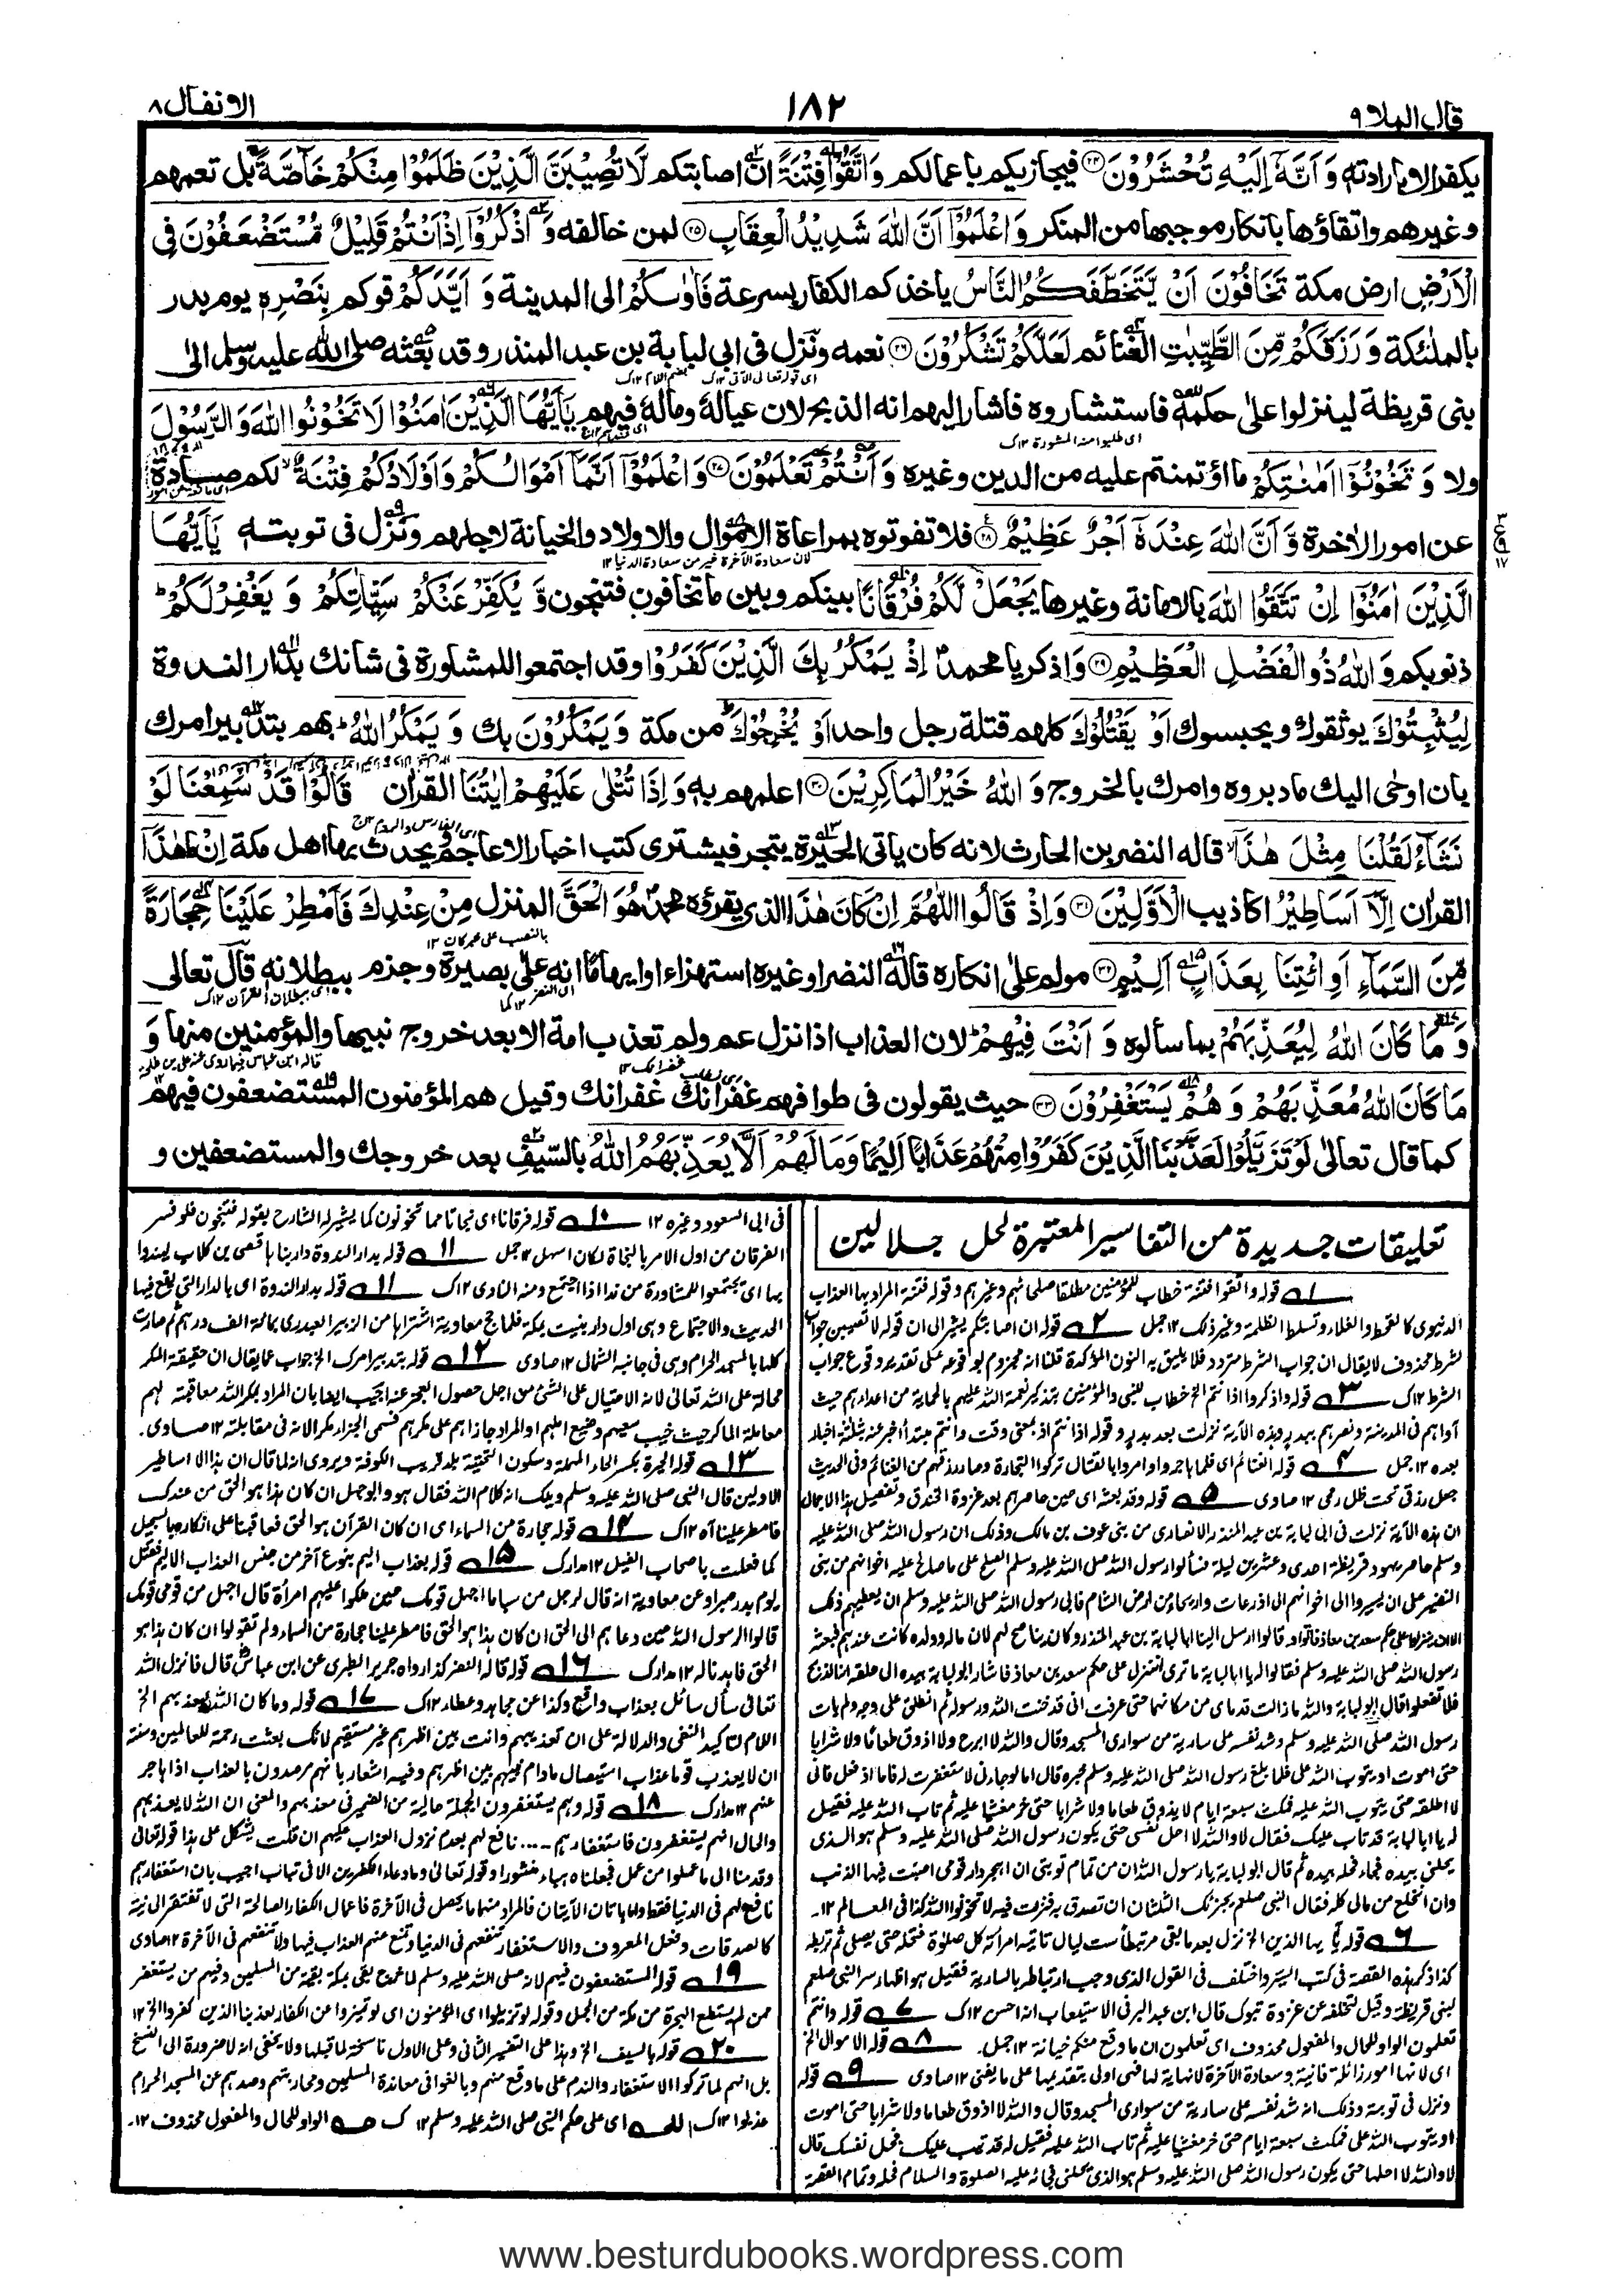 قال الملا ٩
١٨٢
الانفال ٨
يكفر الا بارادته وَ اَنَّهٗۤ اِلَيْهِ تُحْشَرُوْنَ ۝٢٤ فيجازيكم باعمالكم وَاتَّقُوْا فِتْنَةً ان اصابتكم لَّا تُصِيْبَنَّ الَّذِيْنَ ظَلَمُوْا مِنْكُمْ خَآصَّةً بل تعمهم
وغيرهم واتقاؤها بانكار موجبها من المنكر وَاعْلَمُوْۤا اَنَّ اللّٰهَ شَدِيْدُ الْعِقَابِ ۝٢٥ لمن خالفه وَ اذْكُرُوْۤا اِذْ اَنْتُمْ قَلِيْلٌ مُّسْتَضْعَفُوْنَ فِى
الْاَرْضِ ارض مكة تَخَافُوْنَ اَنْ يَّتَخَطَّفَكُمُ النَّاسُ ياخذكم الكفار بسرعة فَاٰوٰىكُمْ الى المدينة وَ اَيَّدَكُمْ قوكم بِنَصْرِهٖ يوم بدر
بالملئكة وَ رَزَقَكُمْ مِّنَ الطَّيِّبٰتِ الغنائم لَعَلَّكُمْ تَشْكُرُوْنَ ۝٢٦ نعمه ونزل فى ابى لبابة بن عبد المنذر وقد بعثه صلى الله عليه وسلم الى
بنى قريظة لينزلوا على حكمه فاستشاروه فاشار اليهم انه الذبح لان عياله وماله فيهم يٰۤاَيُّهَا الَّذِيْنَ اٰمَنُوْا لَا تَخُوْنُوا اللّٰهَ وَ الرَّسُوْلَ
ولا وَ تَخُوْنُوْۤا اَمٰنٰتِكُمْ ما اؤتمنتم عليه من الدين وغيره وَ اَنْتُمْ تَعْلَمُوْنَ ۝٢٧ وَ اعْلَمُوْۤا اَنَّمَاۤ اَمْوَالُكُمْ وَ اَوْلَادُكُمْ فِتْنَةٌ لكم صادة
عن امور الاخرة وَّ اَنَّ اللّٰهَ عِنْدَهٗۤ اَجْرٌ عَظِيْمٌ ۝٢٨ فلا تفوتوه بمراعاة الاموال والاولاد والخيانة لاجلهم ونزل فى توبته يٰۤاَيُّهَا
الَّذِيْنَ اٰمَنُوْۤا اِنْ تَتَّقُوا اللّٰهَ بالامانة وغيرها يَجْعَلْ لَّكُمْ فُرْقَانًا بينكم وبين ما تخافون فتنجون وَّ يُكَفِّرْ عَنْكُمْ سَيِّاٰتِكُمْ وَ يَغْفِرْ لَكُمْ
ذنوبكم وَ اللّٰهُ ذُو الْفَضْلِ الْعَظِيْمِ ۝٢٩ وَ اذكر يا محمد اِذْ يَمْكُرُ بِكَ الَّذِيْنَ كَفَرُوْا وقد اجتمعوا للمشاورة فى شانك بدار الندوة
لِيُثْبِتُوْكَ يوثقوك ويحبسوك اَوْ يَقْتُلُوْكَ كلهم قتلة رجل واحد اَوْ يُخْرِجُوْكَ من مكة وَ يَمْكُرُوْنَ بك وَ يَمْكُرُ اللّٰهُ بهم بتدبير امرك
بان اوحى اليك ما دبروه وامرك بالخروج وَ اللّٰهُ خَيْرُ الْمَاكِرِيْنَ ۝٣٠ اعلمهم به وَ اِذَا تُتْلٰى عَلَيْهِمْ اٰيٰتُنَا القرآن قَالُوْا قَدْ سَمِعْنَا لَوْ
نَشَآءُ لَقُلْنَا مِثْلَ هٰذَاۤ قاله النضر بن الحارث لانه كان ياتى الحيرة يتجر فيشترى كتب اخبار الاعاجم ويحدث بها اهل مكة اِنْ ما هٰذَاۤ
القرآن اِلَّاۤ اَسَاطِيْرُ اكاذيب الْاَوَّلِيْنَ ۝٣١ وَ اِذْ قَالُوا اللّٰهُمَّ اِنْ كَانَ هٰذَا الذى يقرؤه محمد هُوَ الْحَقَّ المنزل مِنْ عِنْدِكَ فَاَمْطِرْ عَلَيْنَا حِجَارَةً
مِّنَ السَّمَآءِ اَوِ ائْتِنَا بِعَذَابٍ اَلِيْمٍ ۝٣٢ مولم على انكاره قاله النضر او غيره استهزاء او ايهاما انه على بصيرة وجزم ببطلانه قال تعالى
وَ مَا كَانَ اللّٰهُ لِيُعَذِّبَهُمْ بما سألوه وَ اَنْتَ فِيْهِمْ لان العذاب اذا نزل عم ولم تعذب امة الا بعد خروج نبيها والمؤمنين منها وَ
مَا كَانَ اللّٰهُ مُعَذِّبَهُمْ وَ هُمْ يَسْتَغْفِرُوْنَ ۝٣٣ حيث يقولون فى طوافهم غفرانك غفرانك وقيل هم المؤمنون المستضعفون فيهم
كما قال تعالى لَوْ تَزَيَّلُوْا لَعَذَّبْنَا الَّذِيْنَ كَفَرُوْا مِنْهُمْ عَذَابًا اَلِيْمًا وَ مَا لَهُمْ اَلَّا يُعَذِّبَهُمُ اللّٰهُ بالسيف بعد خروجك والمستضعفين و
تعليقات جديدة من التفاسير المعتبرة لحل جلالين
١ قوله واتقوا فتنة خطاب للمؤمنين مطلقا صلحائهم وغيرهم وقوله فتنة المراد بها العذاب
الدنيوى كالقحط والغلاء وتسلط الظلمة وغير ذلك ١٢ جمل ٢ قوله ان اصابتكم يشير الى ان قوله لا تصيبن جواب
لشرط محذوف لا يقال ان جواب الشرط متردد فلا يليق به النون المؤكدة قلنا انه مجزوم بوقوعه على تقدير وقوع جواب
الشرط ١٢ ك ٣ قوله واذكروا اذ انتم الخ خطاب للنبى والمؤمنين بتذكير نعمة الله عليهم بالحماية من اعدائهم حيث
آواهم فى المدينة ونصرهم ببدر وهذه الآية نزلت بعد بدر وقوله اذ انتم اذ بمعنى وقت وانتم مبتدأ اخبر عنه بثلاثة اخبار
بعده ١٢ جمل ٤ قوله الغنائم اى فلما هاجروا وامروا بالقتال تركوا التجارة وصار رزقهم من الغنائم وفى الحديث
جعل رزقى تحت ظل رمحى ١٢ صاوى ٥ قوله وقد بعثه اى حين حاصرهم بعد غزوة الخندق وتفصيل هذا الاجمال
ان هذه الآية نزلت فى ابى لبابة بن عبد المنذر الانصارى من بنى عوف بن مالك وذلك ان رسول الله صلى الله عليه
وسلم حاصر يهود قريظة احدى وعشرين ليلة فسألوا رسول الله صلى الله عليه وسلم الصلح على ما صالح عليه اخوانهم من بنى
النضير على ان يسيروا الى اخوانهم الى اذرعات واريحاء من ارض الشام فابى رسول الله صلى الله عليه وسلم ان يعطيهم ذلك
الا ان ينزلوا على حكم سعد بن معاذ فابوا وقالوا ارسل الينا ابا لبابة بن عبد المنذر وكان يناصح لهم لان ماله وولده كانت عندهم فبعثه
رسول الله صلى الله عليه وسلم فقالوا له يا ابا لبابة ما ترى اننزل على حكم سعد بن معاذ فاشار ابو لبابة بيده الى حلقه انه الذبح
فلا تفعلوا قال ابو لبابة والله ما زالت قدماى من مكانهما حتى عرفت انى قد خنت الله ورسوله ثم انطلق على وجهه ولم يات
رسول الله صلى الله عليه وسلم وشد نفسه على سارية من سوارى المسجد وقال والله لا ابرح ولا اذوق طعاما ولا شرابا
حتى اموت او يتوب الله على فلما بلغ رسول الله صلى الله عليه وسلم خبره قال اما لو جاءنى لاستغفرت له فاما اذ فعل فانى
لا اطلقه حتى يتوب الله عليه فمكث سبعة ايام لا يذوق طعاما ولا شرابا حتى خر مغشيا عليه ثم تاب الله عليه فقيل
له يا ابا لبابة قد تاب عليك فقال لا والله لا احل نفسى حتى يكون رسول الله صلى الله عليه وسلم هو الذى
يحلنى بيده فجاء فحله بيده ثم قال ابو لبابة يا رسول الله ان من تمام توبتى ان اهجر دار قومى اصبت فيها الذنب
وان انخلع من مالى كله فقال النبى صلعم يجزئك الثلث ان تصدق به فنزلت فيه لا تخونوا الله كذا فى المعالم ١٢
٦ قوله يا ايها الذين الخ نزل بعد ما بقى مرتبطا ست ليال تاتيه امرأته كل صلوة فتحله حتى يصلى ثم تربطه
كذا ذكر هذه القصة فى كتب السير واختلف فى القول الذى وجب ارتباطه بالسارية فقيل هو اظهار سر النبى صلعم
لبنى قريظة وقيل لتخلفه عن غزوة تبوك قال ابن عبد البر فى الاستيعاب انه احسن ١٢ ك ٧ قوله وانتم
تعلمون الواو للحال والمفعول محذوف اى تعلمون ان ما وقع منكم خيانة ١٢ جمل. ٨ قوله الاموال الخ
اى لانها امور زائلة فانية وسعادة الآخرة لا نهاية لها فهى اولى بتقديمها على ما يفنى ١٢ صاوى ٩ قوله
ونزل فى توبته وذلك انه شد نفسه على سارية من سوارى المسجد وقال والله لا اذوق طعاما ولا شرابا حتى اموت
او يتوب الله على فمكث سبعة ايام حتى خر مغشيا عليه ثم تاب الله عليه فقيل له قد تيب عليك فحل نفسك قال
لا والله لا احلها حتى يكون رسول الله صلى الله عليه وسلم هو الذى يحلنى فجائه عليه الصلوة والسلام فحله وتمام القصة
فى ابى السعود وغيره ١٢ ١٠ قوله فرقانا اى نجاتا مما تخوفون كما يشير له الشارح بقوله فتنجون فلو فسر
الفرقان من اول الامر بالنجاة لكان اسهل ١٢ جمل ١١ قوله بدار الندوة دار بناها قصى بن كلاب ليندوا
بها اى يجتمعوا للمشاورة من ندا اذا اجتمع ومنه النادى ١٢ ك ١١ قوله بدار الندوة اى بالدار التى يقع فيها
الحديث والاجتماع وهى اول دار بنيت بمكة فلما حج معاوية اشتراها من الزبير العبدرى بمائة الف درهم ثم صارت
كلها بالمسجد الحرام وهى فى جانبه الشمال ١٢ صاوى ١٢ قوله بتدبير امرك الخ جواب عما يقال ان حقيقة المكر
محالة على الله تعالى لانه الاحتيال على الشئ من اجل حصول العجز عنه اجيب ايضا بان المراد بمكر الله معاقبته لهم
معاملة الماكر حيث خيب سعيهم وضيع املهم او المراد جازاهم على مكرهم فسمى الجزاء مكرا لانه فى مقابلته ١٢ صاوى.
١٣ قوله الحيرة بكسر الحاء المهملة وسكون التحتية بلد قريب الكوفة ويروى انه لما قال ان هذا الا اساطير
الاولين قال النبى صلى الله عليه وسلم ويلك انه كلام الله فقال هو وابو جهل ان كان هذا هو الحق من عندك
فامطر علينا آه ١٢ ك ١٤ قوله حجارة من السماء اى ان كان القرآن هو الحق فعاقبنا على انكاره بالسجيل
كما فعلت باصحاب الفيل ١٢ مدارك ١٥ قوله بعذاب اليم بنوع آخر من جنس العذاب الاليم فقتل
يوم بدر صبرا وعن معاوية انه قال لرجل من سبا ما اجهل قومك حين ملكوا عليهم امرأة قال اجهل من قومى قومك
قالوا لرسول الله حين دعاهم الى الحق ان كان هذا هو الحق فامطر علينا حجارة من السماء ولم يقولوا ان كان هذا هو
الحق فاهدنا له ١٢ مدارك ١٦ قوله قاله النضر كذا رواه جرير الطبرى عن ابن عباس قال فانزل الله
تعالى سأل سائل بعذاب واقع وكذا عن مجاهد وعطاء ١٢ ك ١٧ قوله وما كان الله ليعذبهم الخ
اللام لتاكيد النفى والدلالة على ان تعذيبهم وانت بين اظهرهم غير مستقيم لانك بعثت رحمة للعالمين وسنته
ان لا يعذب قوما عذاب استيصال ما دام نبيهم بين اظهرهم وفيه اشعار بانهم مرصدون بالعذاب اذا هاجر
عنهم ١٢ مدارك ١٨ قوله وهم يستغفرون الجملة حالية من الضمير فى معذبهم والمعنى ان الله لا يعذبهم
والحال انهم يستغفرون فاستغفارهم .... نافع لهم بعدم نزول العذاب عليهم ان قلت يشكل على هذا قوله تعالى
وقدمنا الى ما عملوا من عمل فجعلناه هباء منثورا وقوله تعالى وما دعاء الكفرين الا فى تباب اجيب بان استغفارهم
نافع لهم فى الدنيا فقط واما هاتان الآيتان فالمراد منهما ما يحصل فى الآخرة فاعمال الكفار الصالحة التى لا تفتقر الى نية
كالصدقات وفعل المعروف والاستغفار تنفعهم فى الدنيا وتمنع عنهم العذاب فيها ولا تنفعهم فى الآخرة ١٢ صاوى
١٩ قوله المستضعفون فيهم لانه صلى الله عليه وسلم لما خرج بقى بمكة بقية من المسلمين وفيهم من يستغفر
ممن لم يستطع الهجرة من مكة من الجمل وقوله لو تزيلوا اى المؤمنون اى لو تميزوا عن الكفار لعذبنا الذين كفروا الخ ١٢
٢٠ قوله بالسيف الخ وهذا على التفسير الثانى وعلى الاول ناسخة لما قبلها ولا يخفى انه لا ضرورة الى النسخ
بل انهم لما تركوا الاستغفار والندم على ما وقع منهم وبالغوا فى معاندة المسلمين ومحاربتهم وصدهم عن المسجد الحرام
عذبوا ١٢ ك اى على حكم النبى صلى الله عليه وسلم ١٢ ك الواو للحال والمفعول محذوف ١٢
www.besturdubooks.wordpress.com